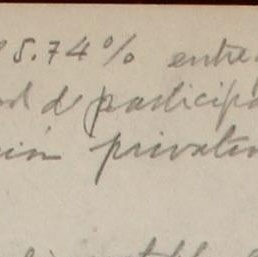 5.74% entre
d de participa
ión privativ